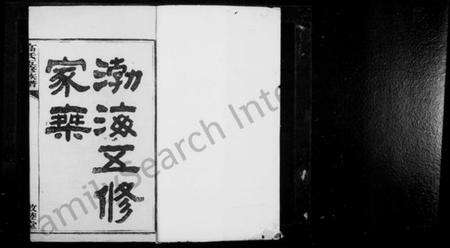 渤海五修
家乘
FamilySearch Inte